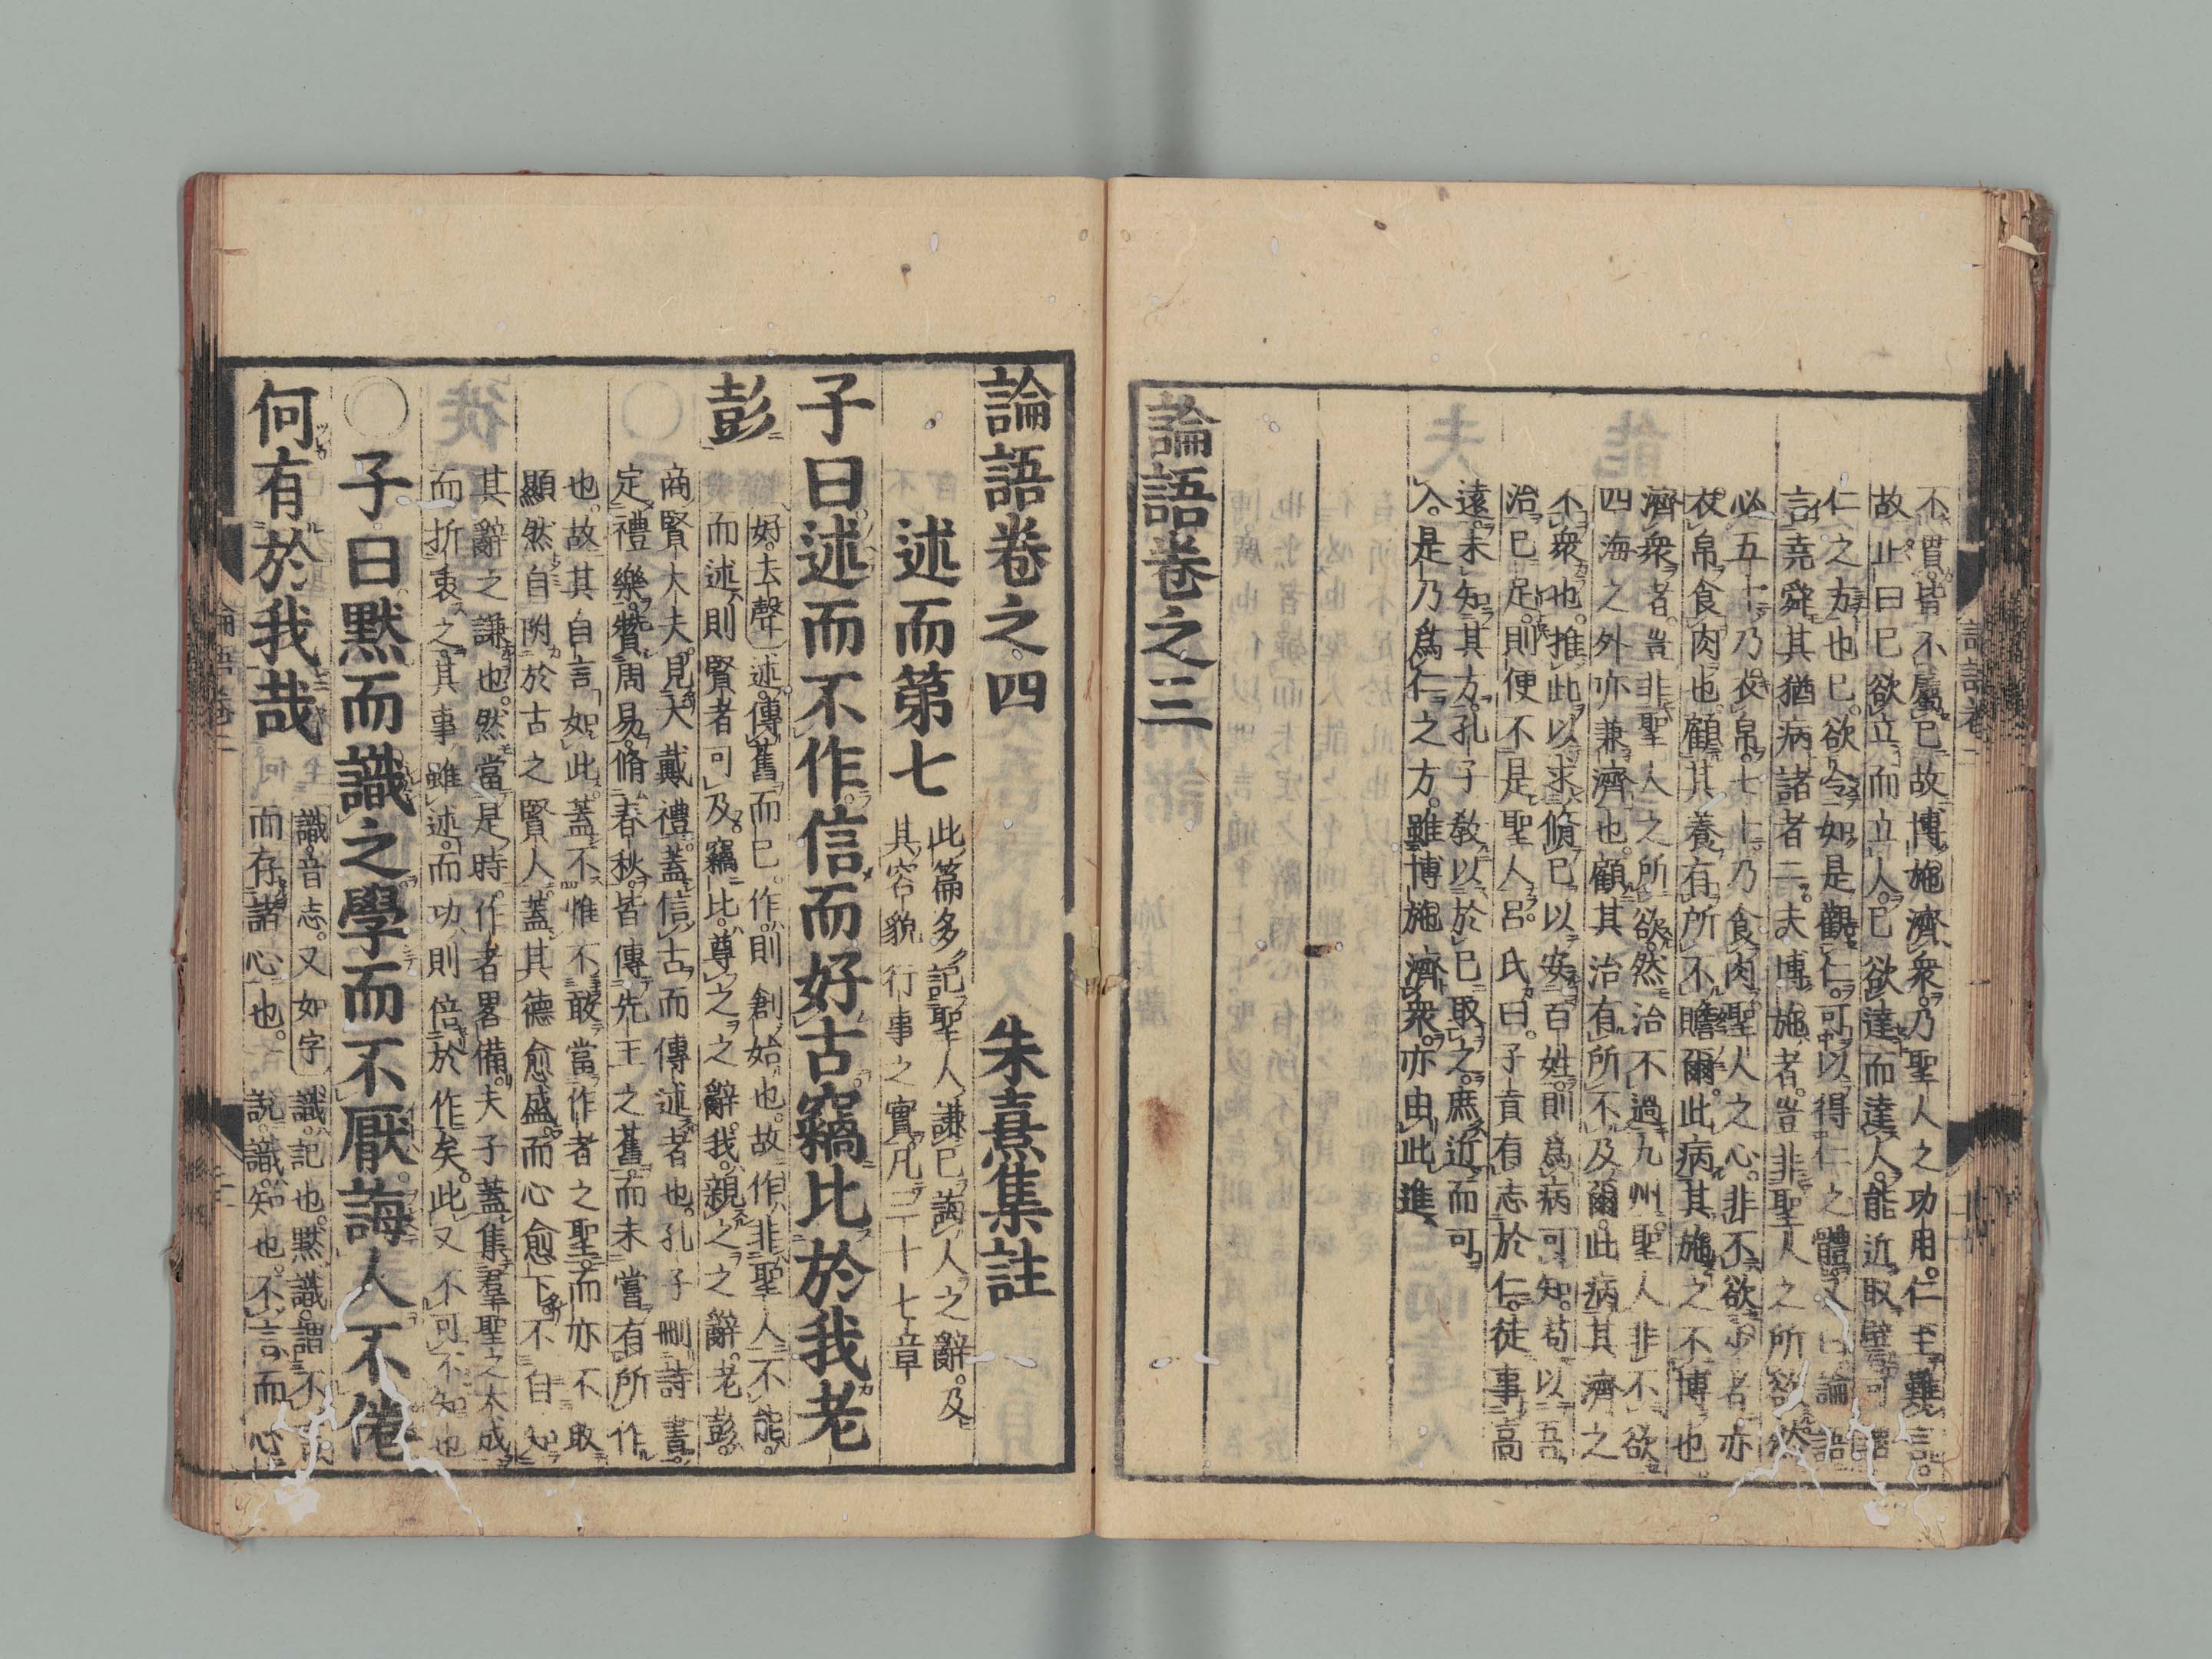 不貫。皆不屬己。故博施濟衆。乃聖人之功用。仁至難言。
故止曰己欲立而立人。己欲達而達人。能近取譬。可謂
仁之方也已。欲令如是觀仁。可以得仁之體。又曰論語
言堯舜其猶病諸者二。夫博施者。豈非聖人之所欲。然
必五十乃衣帛。七十乃食肉。聖人之心。非不欲少者亦
衣帛食肉也。顧其養有所不贍爾。此病其施之不博也。
濟衆者。豈非聖人之所欲。然治不過九州。聖人非不欲
四海之外亦兼濟也。顧其治有所不及爾。此病其濟之
不衆也。推此以求脩己以安百姓。則爲病可知。苟以吾
治已足。則便不是聖人。呂氏曰。子貢有志於仁。徒事高
遠。未知其方。孔子敎以於己取之。庶近而可
入。是乃爲仁之方。雖博施濟衆。亦由此進
論語卷之三
論語卷之四 朱熹集註
述而第七
此篇多記聖人謙己誨人之辭。及
其容貌行事之實。凡三十七章
子曰述而不作。信而好古。竊比於我老
彭
好。去聲 述。傳舊而已。作。則創始也。故作非聖人不能。
而述則賢者可及。竊比。尊之之辭。我。親之之辭。老彭。
商賢大夫。見大戴禮。蓋信古而傳述者也。孔子刪詩書。
定禮樂。贊周易。脩春秋。皆傳先王之舊。而未嘗有所作
也。故其自言如此。蓋不惟不敢當作者之聖。而亦不敢
顯然自附於古之賢人。蓋其德愈盛而心愈下。不自知
其辭之謙也。然當是時。作者畧備。夫子蓋集羣聖之大成
而折衷之。其事雖述。而功則倍於作矣。此又不可不知也
○子曰默而識之。學而不厭。誨人不倦
何有於我哉
識。音志。又如字 識。記也。默識。謂不言
而存諸心也。 説。識。知也。不言而心